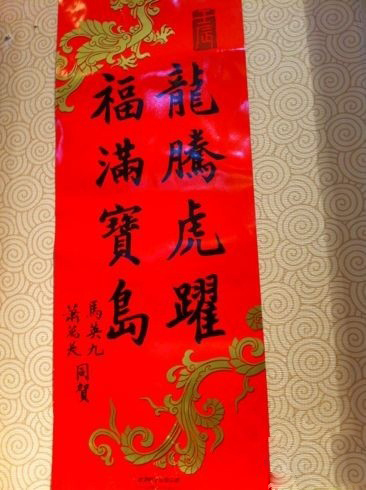 壬辰
龍騰虎躍
福滿寶島
馬英九
蕭萬長
同賀